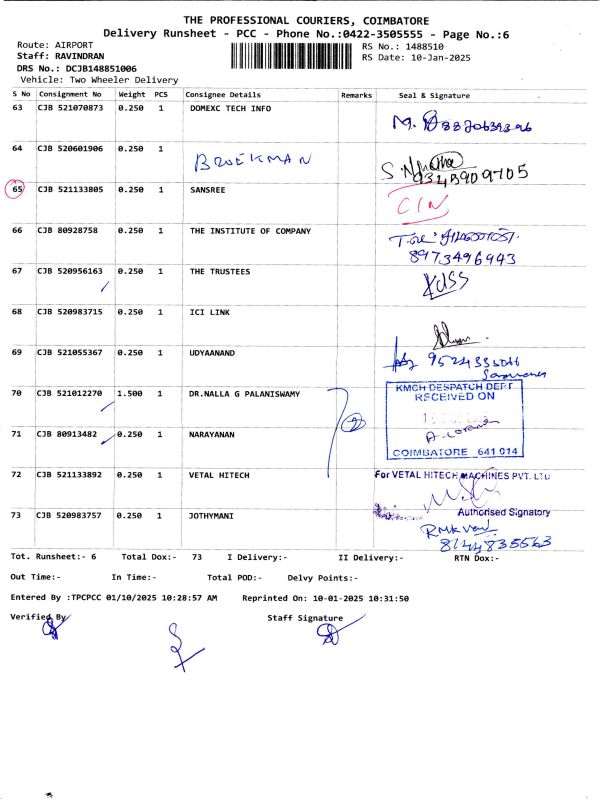 THE PROFESSIONAL COURIERS, COIMBATORE
Delivery Runsheet - PCC - Phone No.:0422-3505555 - Page No.:6
Route: AIRPORT RS No.: 1488510
Staff: RAVINDRAN RS Date: 10-Jan-2025
DRS No.: DCJB148851006
Vehicle: Two Wheeler Delivery
S No Consignment No Weight PCS Consignee Details Remarks Seal & Signature
63 CJB 521070873 0.250 1 DOMEXC TECH INFO
64 CJB 520601906 0.250 1 BROEKMAN
65 CJB 521133805 0.250 1 SANSREE CIN
66 CJB 80928758 0.250 1 THE INSTITUTE OF COMPANY
8973496943
67 CJB 520956163 0.250 1 THE TRUSTEES
68 CJB 520983715 0.250 1 ICI LINK
69 CJB 521055367 0.250 1 UDYAANAND
70 CJB 521012270 1.500 1 DR.NALLA G PALANISWAMY KMCH DESPATCH DEPT
RECEIVED ON
71 CJB 80913482 0.250 1 NARAYANAN
COIMBATORE 641 014
72 CJB 521133892 0.250 1 VETAL HITECH For VETAL HITECH MACHINES PVT. LTD
Authorised Signatory
73 CJB 520983757 0.250 1 JOTHYMANI
8144835563
Tot. Runsheet:- 6 Total Dox:- 73 I Delivery:- II Delivery:- RTN Dox:-
Out Time:- In Time:- Total POD:- Delvy Points:-
Entered By :TPCPCC 01/10/2025 10:28:57 AM Reprinted On: 10-01-2025 10:31:50
Verified By Staff Signature